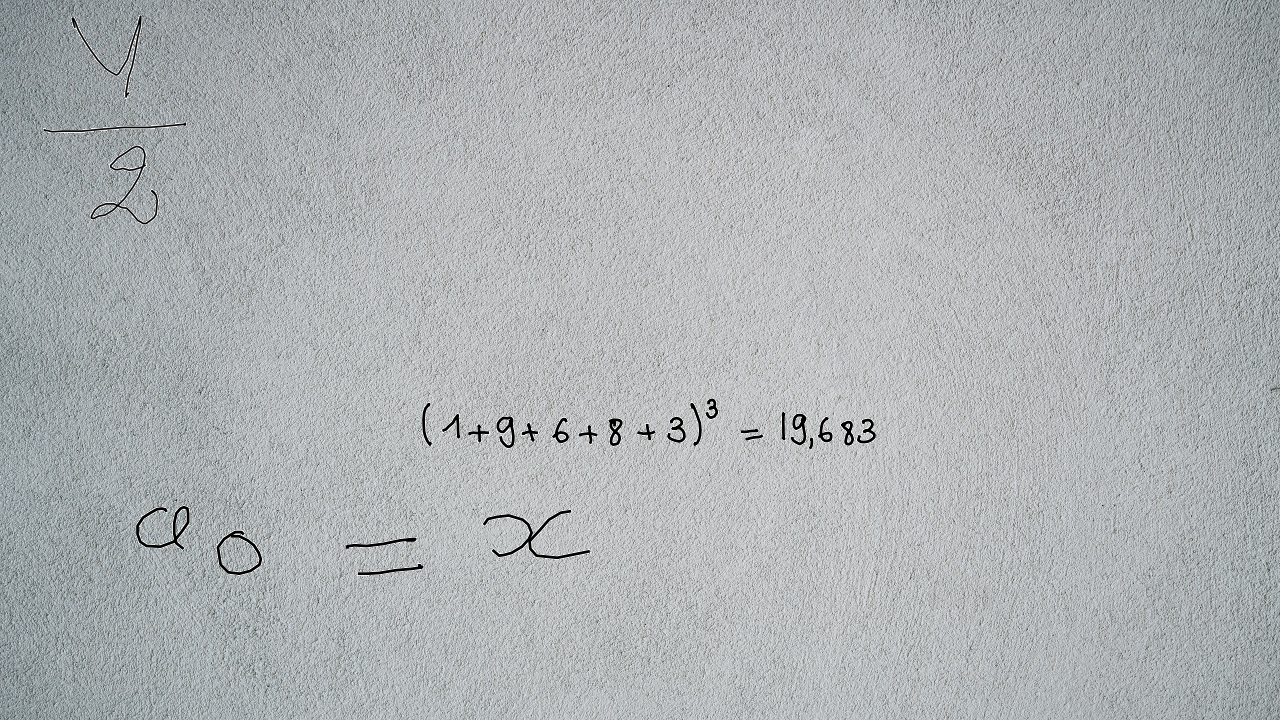 y/2
(1+9+6+8+3)³ = 19,683
a₀ = x